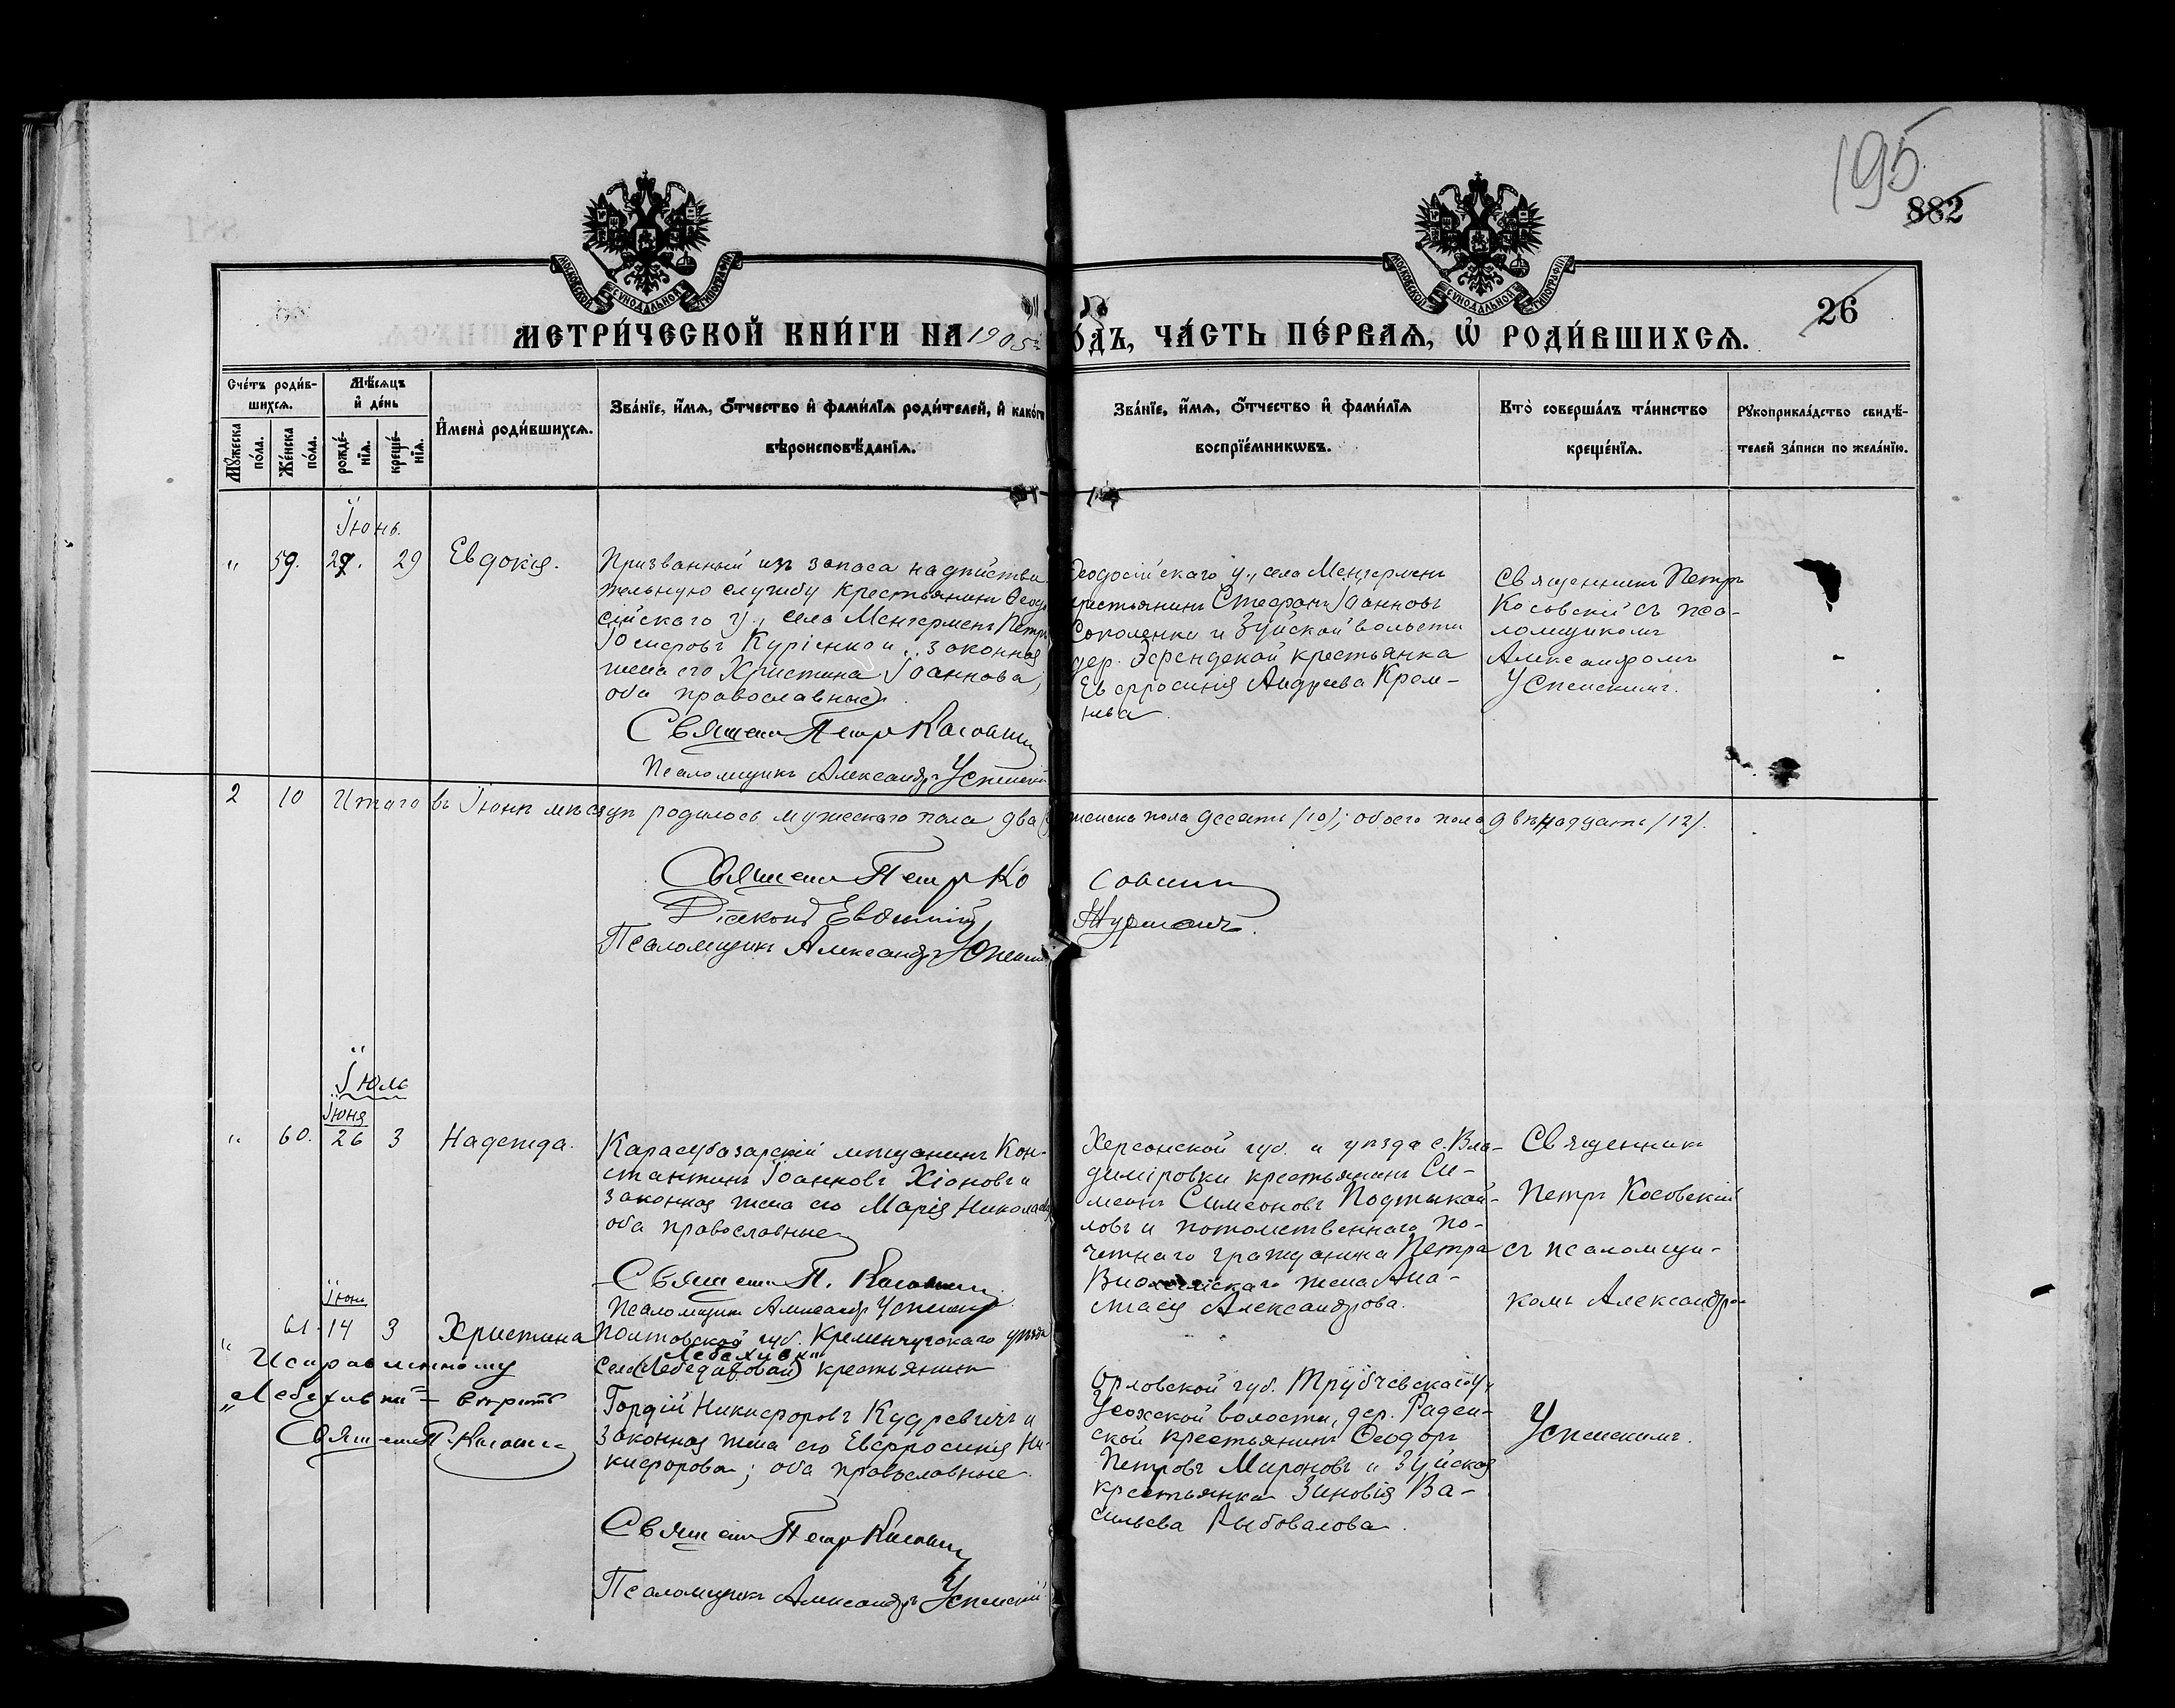 195
882
26
МОСКОВСКОЙ СѴНОДАЛЬНОЙ ТИПОГРАФІИ
МОСКОВСКОЙ СѴНОДАЛЬНОЙ ТИПОГРАФІИ
МЕТРИ́ЧЕСКОЙ КНИ́ГИ НА 1905 го́дъ, ЧА́СТЬ ПЕ́РВАѦ, Ѡ҆ РОДИ́ВШИХСѦ.
Сче́тъ роди́вшихсѧ.
Мѣ́сѧцъ и҆ де́нь
И҆мена̀ роди́вшихсѧ.
Зва́нїе, и҆́мѧ, ѻ҆́тчество и҆ фами́лїѧ роди́телей, и҆ како́гѡ
вѣроисповѣ́данїѧ.
Зва́нїе, и҆́мѧ, ѻ҆́тчество и҆ фами́лїѧ
воспрїе́мникѡвъ.
Кто̀ соверша́лъ та́инство
креще́нїѧ.
Рꙋкоприкла́дство свидѣ́-
телей за́писи по жела́нїю.
Мꙋ́жеска по́ла.
Же́нска по́ла.
рожде́нїѧ.
креще́нїѧ.
Іюнь.
" 59. 27. 29 Евдокія.
Призванный изъ запаса на дѣйстви
тельную службу крестьянинъ Ѳеодо
сійскаго у., села Менгерменъ Петръ
Іосифовъ Куріенко и законная
жена его Христина Іоаннова,
оба православные.
Священ Петръ Косовскій
Псаломщикъ Александръ Успенскій
Ѳеодосійскаго у., села Менгерменъ
крестьянинъ Стефанъ Іоанновъ
Соколенко и Зуйской волости
дер. Эфендекой крестьянка
Евфросинія Андреева Крем-
нева.
Священникъ Петръ
Косовскій съ пса-
ломщикомъ
Александромъ
Успенскимъ.
2 10 Итого въ Іюнѣ мѣсяцѣ родилось мужескаго пола два женска пола десять /10/; обоего пола двѣнадцать /12/.
Священ Петръ Косовскій
Діаконъ Евѳимій
Псаломщикъ Александръ Успенскій
Іюль
Іюня
" 60. 26 3 Надежда.
Карасубазарскій мѣщанинъ Кон-
стантинъ Іоанновъ Хіоновъ и
законная жена его Марія Николаева
оба православные
Священ П. Косовскій
Псаломщикъ Александръ Успенскій
Херсонской губ. и уѣзда с. Вла-
диміровки крестьянинъ Си-
меонъ Симеоновъ
и потомственнаго По-
четнаго гражданина Петра
жена Ана-
стасія Александрова.
Священникъ
Петръ Косовскій
съ псаломщи-
комъ Александро-
Іюня
" 61. 14 3 Христина
Исправленному
"Лебехивки" вѣрить
Свящ П. Косовскій
Полтавской губ. Кременчугскаго уѣзда
Лебехивки
села крестьянинъ
Гордій Никифоровъ Кудревичъ и
законная жена его Евфросинія Ни-
кифорова; оба православные.
Священ Петръ Косовскій
Псаломщикъ Александръ Успенскій
Орловской губ. Трубчевскаго у.,
Усожской волости, дер.
крестьянинъ Ѳеодоръ
Петровъ Мироновъ и Зуйская
крестьянка Зиновія Ва-
сильева Рыбовалова.
Успенскимъ.